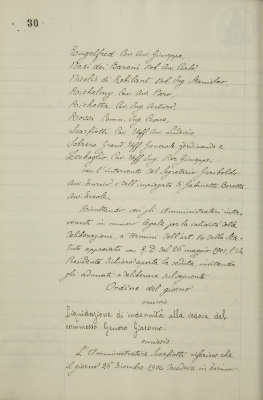 30
Engelfred Cav. Avv. Giuseppe
Nasi dei Baroni Dot. Avv. Carlo
Nicolis di Robilant Dot. Ing. Stanislao
Peicheleny Cav. Avv. Piero
Pichetto Cav. Ing. Arturo
Rossi Comm. Ing. Cesare
Scarfiotti Cav. Uff. Avv. Ludovico
Sobrero Grand' Uff. Generale Ferdinando e
Zerboglio Cav. Uff. Ing. Giuseppe.
con l'intervento del Segretario Garibaldi
Avv. Enrico e dell'impiegato di Gabinetto Boretta
Avv. Ercole.
Risultando con gli Amministratori inter-
venuti in numero legale per la validità delle
deliberazioni, a termini dell'art. dello Sta-
tuto approvato con R. D. del 26 maggio 1901, l'Ill.
Presidente dichiara aperta la seduta, invitando
gli adunati a deliberare sul seguente
Ordine del giorno
omissis
Liquidazione di indennità alla vedova del
commesso Giacomo.
omissis
L'Amministratore Scarfiotti riferisce che
il giorno 25 Dicembre 1904 decedeva in Torino